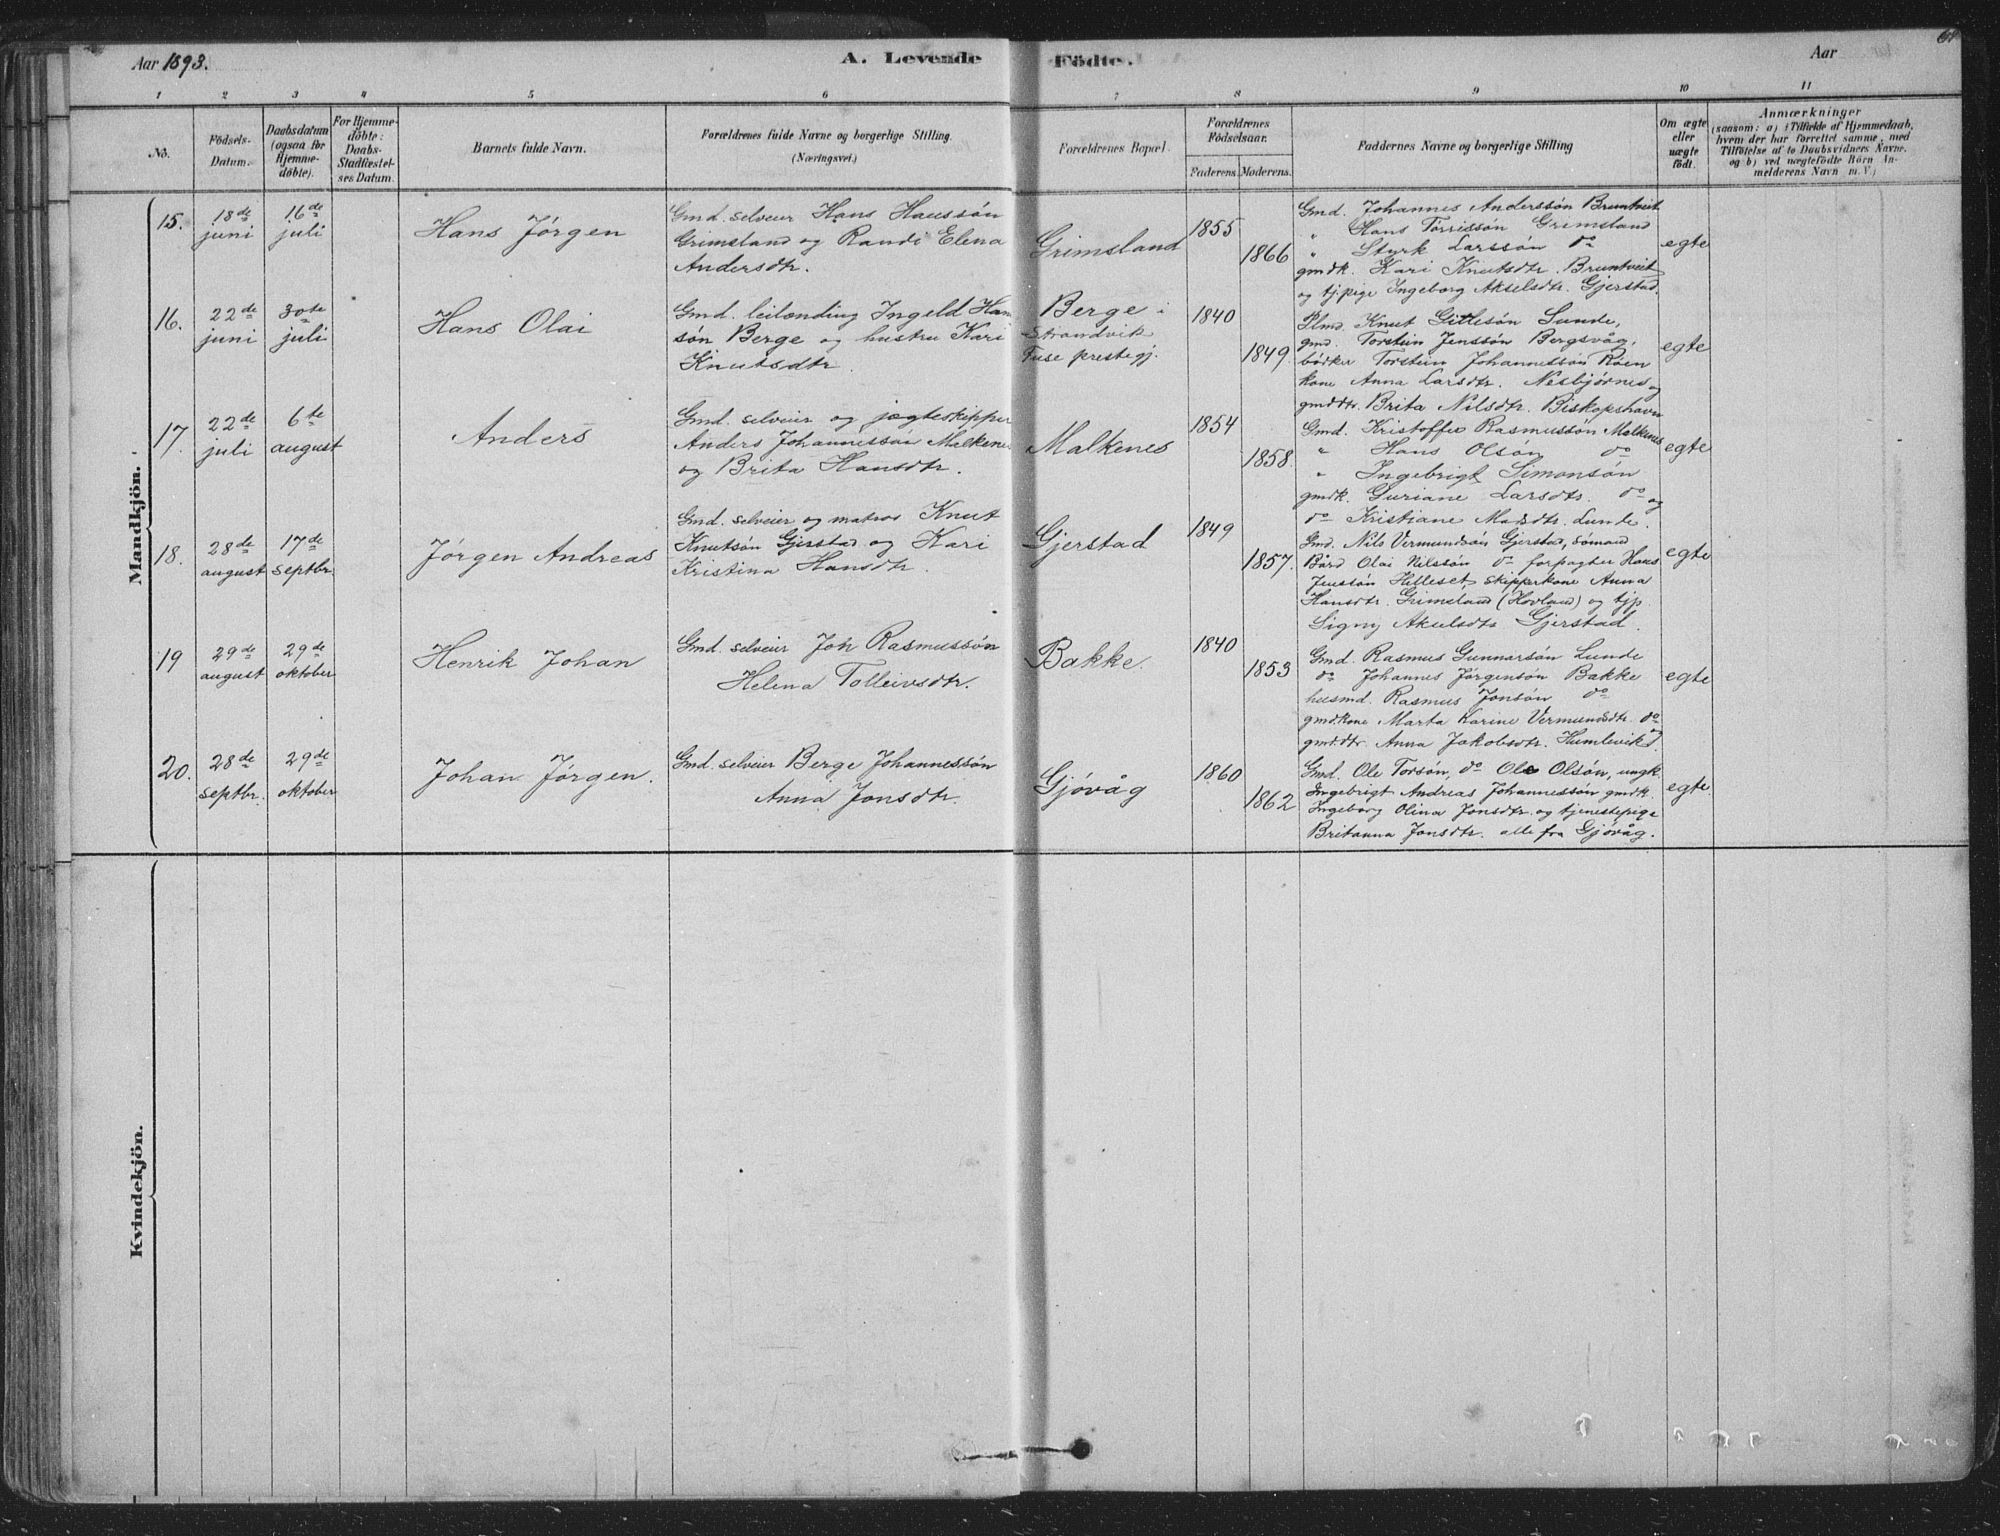 Aar 1893.
A. Levende
Födte.
Aar
1 2 3 4 5 6 7 8 9 10 11
No.
Födsels-
Datum.
Daabsdatum
(ogsaa for
Hjemme-
døbte).
For Hjemme-
döbte:
Daabs-
Stadfæstel-
ses Datum.
Barnets fulde Navn.
Forældrenes fulde Navne og borgerlige Stilling.
(Næringsvei.)
Forældrenes Bopæl.
Forældrenes
Födselsaar.
Faderens. Moderens.
Faddernes Navne og borgerlige Stilling
Om ægte
eller
uægte
födt.
Anmærkninger
(saasom: a) i Tilfælde af Hjemmedaab,
hvem der har forrettet samme, med
Tilföielse af to Daabsvidners Navne.
og b) ved uægtefödte Börn An-
melderens Navn m. V.)
Mandkjön.
15.
18de
juni
16de
juli
Hans Jørgen
Gmd. selveier Hans Hanssön
Grimsland og Randi Elena
Andersdtr.
Grimsland
1855
1866
Gmd. Johannes Anderssön Bruntveit
" Hans Torrissön Grimsland
" Styrk Larssön do
gmdk. Kari Knutsdtr. Bruntveit
og tj.pige Ingeborg Akselsdtr. Gjerstad.
egte
16.
22de
juni
30te
juli
Hans Olai
Gmd. leilænding Ingeld Han
sön Berge og hustru Kari
Knutsdtr.
Berge i
Strandvik
Fuse prestegj.
1840
1849
Knut Gitlesön Lunde,
gmd. Torstein Jenssön Bergsvåg,
bödker Torstein Johannessön Röen
kone Anna Larsdtr. Nesbjörnes og
gmddtr. Brita Nilsdtr. Biskopshavn
egte
17.
22de
juli
6te
august
Anders
Gmd. selveier og jægteskipper
Anders Johannessön Malkenes
og Brita Hansdtr.
Malkenes
1854
1858.
Gmd. Kristoffer Rasmussön Malkenes
" Hans Olsön do
" Ingebrigt Simonsön
gmdk. Guriane Larsdtr. do og
do Kristiane Madsdtr. Lunde.
egte
18.
28de
august
17de
septbr.
Jørgen Andreas
Gmd. selveier og matros Knut
Knutsön Gjerstad og Kari
Kristina Hansdtr.
Gjerstad
1849
1857.
Gmd. Nils Vermundsön Gjerstad, sömand
Bård Olai Nilssön do forpagter Hans
Jenssön Hilleset, skipperkone Anna
Hansdtr. Grimsland (Hovland) og tjp.
Signy Akselsdtr Gjerstad.
egte
19
29de
august
29de
oktober
Henrik Johan
Gmd. selveier Joh Rasmussön
Helena Tolleivsdtr.
Bakke.
1840
1853
Gmd. Rasmus Gunnarsön Lunde
do Johannes Jörgensön Bakke
husmd. Rasmus Jonsön do
gmdkone Marta Karine Vermundsdtr. do og
gmddtr. Anna Jakobsdtr. Humlevik.
egte
20.
28de
septbr.
29de
oktober
Johan Jørgen.
Gmd. selveier Berge Johannessön
Anna Jonsdtr.
Gjövåg
1860
1862
Gmd. Ole Torsön, do Ole Olsön, ungk.
Ingebrigt Andreas Johannessön gmdk.
Ingeborg Olina Jonsdtr. og tjenestepige
Britanna Jonsdtr. alle fra Gjövåg.
egte.
Kvindekjön.